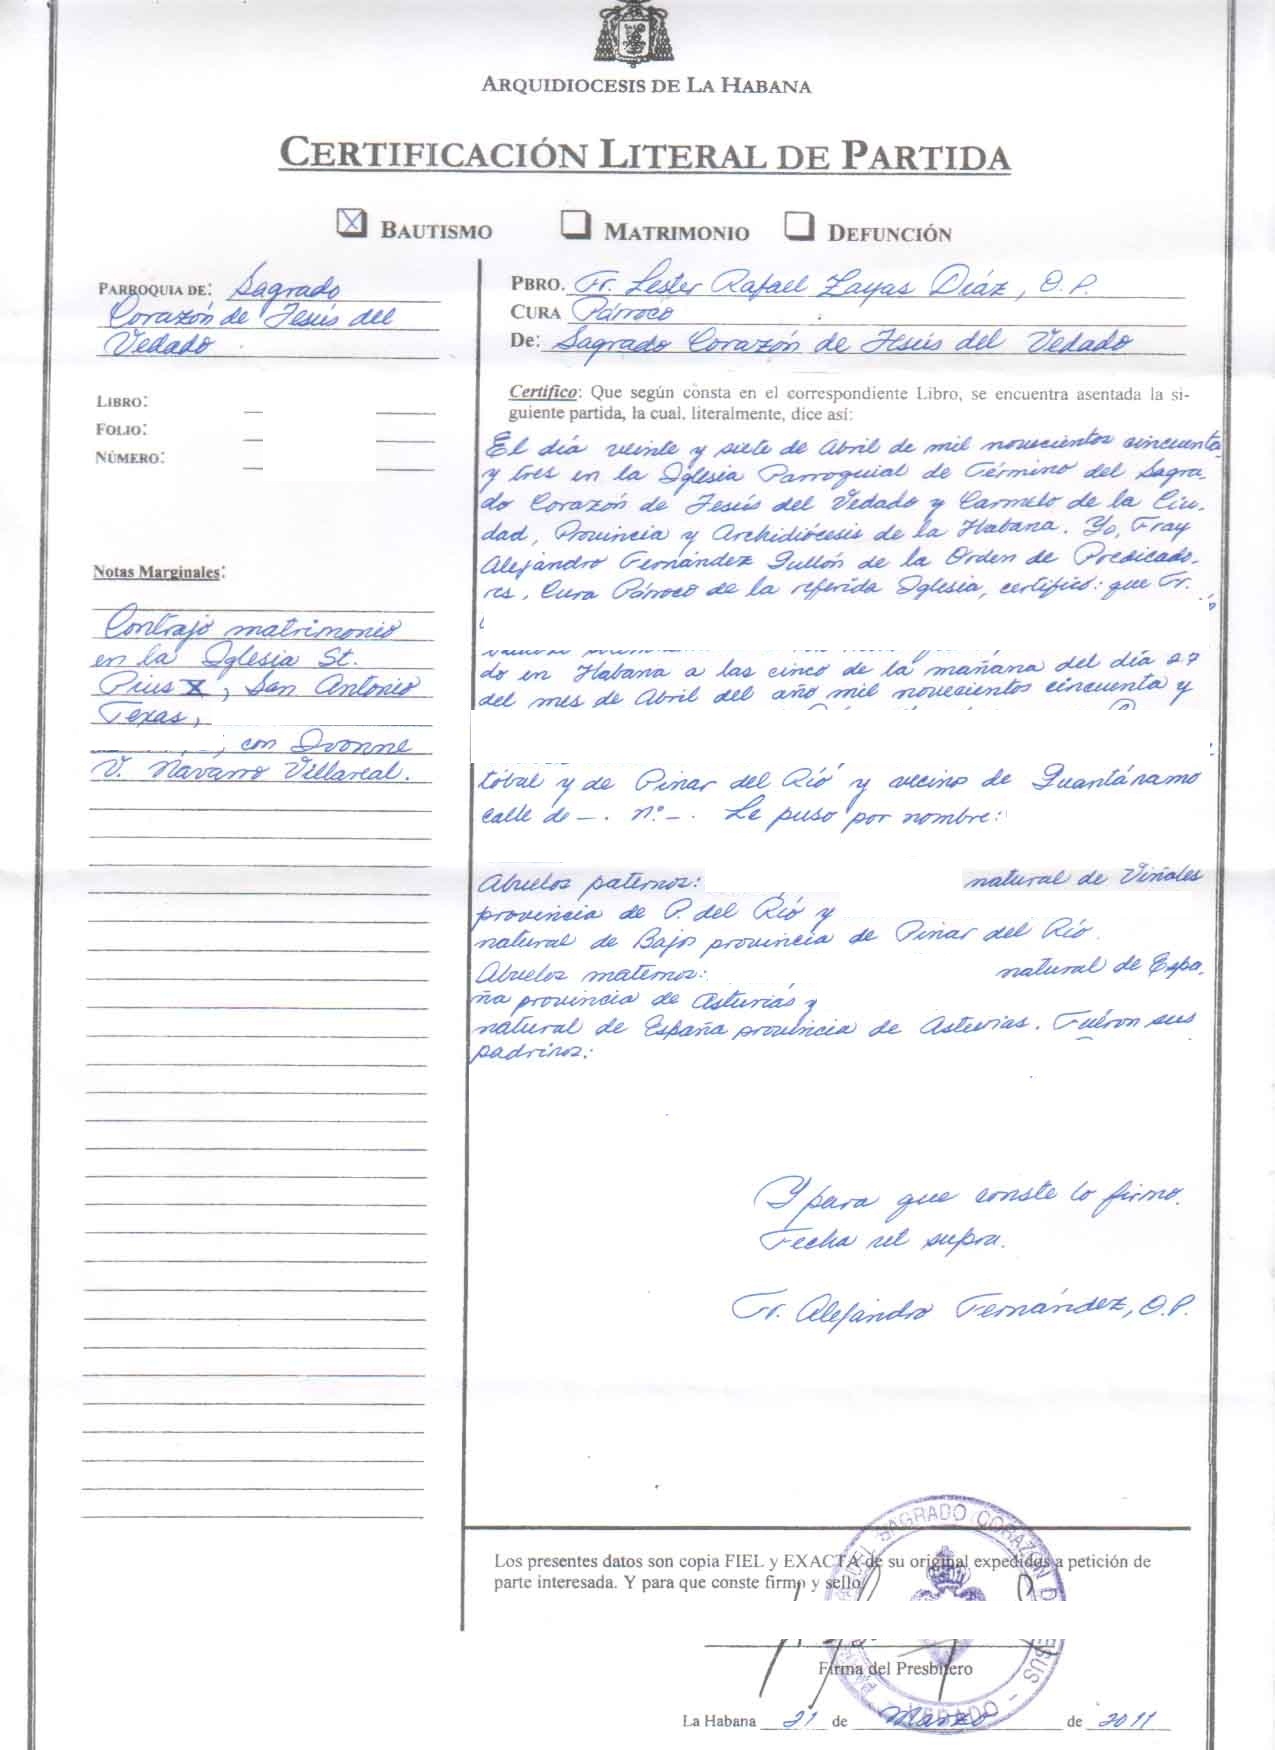 ARQUIDIOCESIS DE LA HABANA
CERTIFICACIÓN LITERAL DE PARTIDA
BAUTISMO MATRIMONIO DEFUNCIÓN
PARROQUIA DE: Sagrado
Corazón de Jesús del
Vedado
LIBRO:
FOLIO:
NÚMERO:
Notas Marginales:
Contrajo matrimonio
en la Iglesia St.
Pius X, San Antonio
Texas,
, con Ivonne
V. Navarro Villareal.
PBRO. Fr. Lester Rafael Zayas Díaz, O.P.
CURA Párroco
De: Sagrado Corazón de Jesús del Vedado
Certifico: Que según consta en el correspondiente Libro, se encuentra asentada la si-
guiente partida, la cual, literalmente, dice así:
El día veinte y siete de Abril de mil novecientos cincuenta
y tres en la Iglesia Parroquial de Término del Sagra-
do Corazón de Jesús del Vedado y Carmelo de la Ciu-
dad, Provincia y Archidiócesis de la Habana. Yo, Fray
Alejandro Fernández Gullón de la Orden de Predicado-
res, Cura Párroco de la referida Iglesia, certifico: que Fr.
do en Habana a las cinco de la mañana del día 27
del mes de Abril del año mil novecientos cincuenta y
tóbal y de Pinar del Río y vecino de Guantánamo
calle de —. nº —. Le puso por nombre:
Abuelos paternos: natural de Viñales
provincia de P. del Río y
natural de Bajos provincia de Pinar del Río.
Abuelos maternos: natural de Espa-
ña provincia de Asturias y
natural de España provincia de Asturias. Fueron sus
padrinos:
Y para que conste lo firmo.
Fecha ut supra.
Fr. Alejandro Fernández, O.P.
Los presentes datos son copia FIEL y EXACTA de su original expedidos a petición de
parte interesada. Y para que conste firmo y sello.
SAGRADO CORAZON DE JESUS - VEDADO
Firma del Presbítero
La Habana 21 de Marzo de 2011